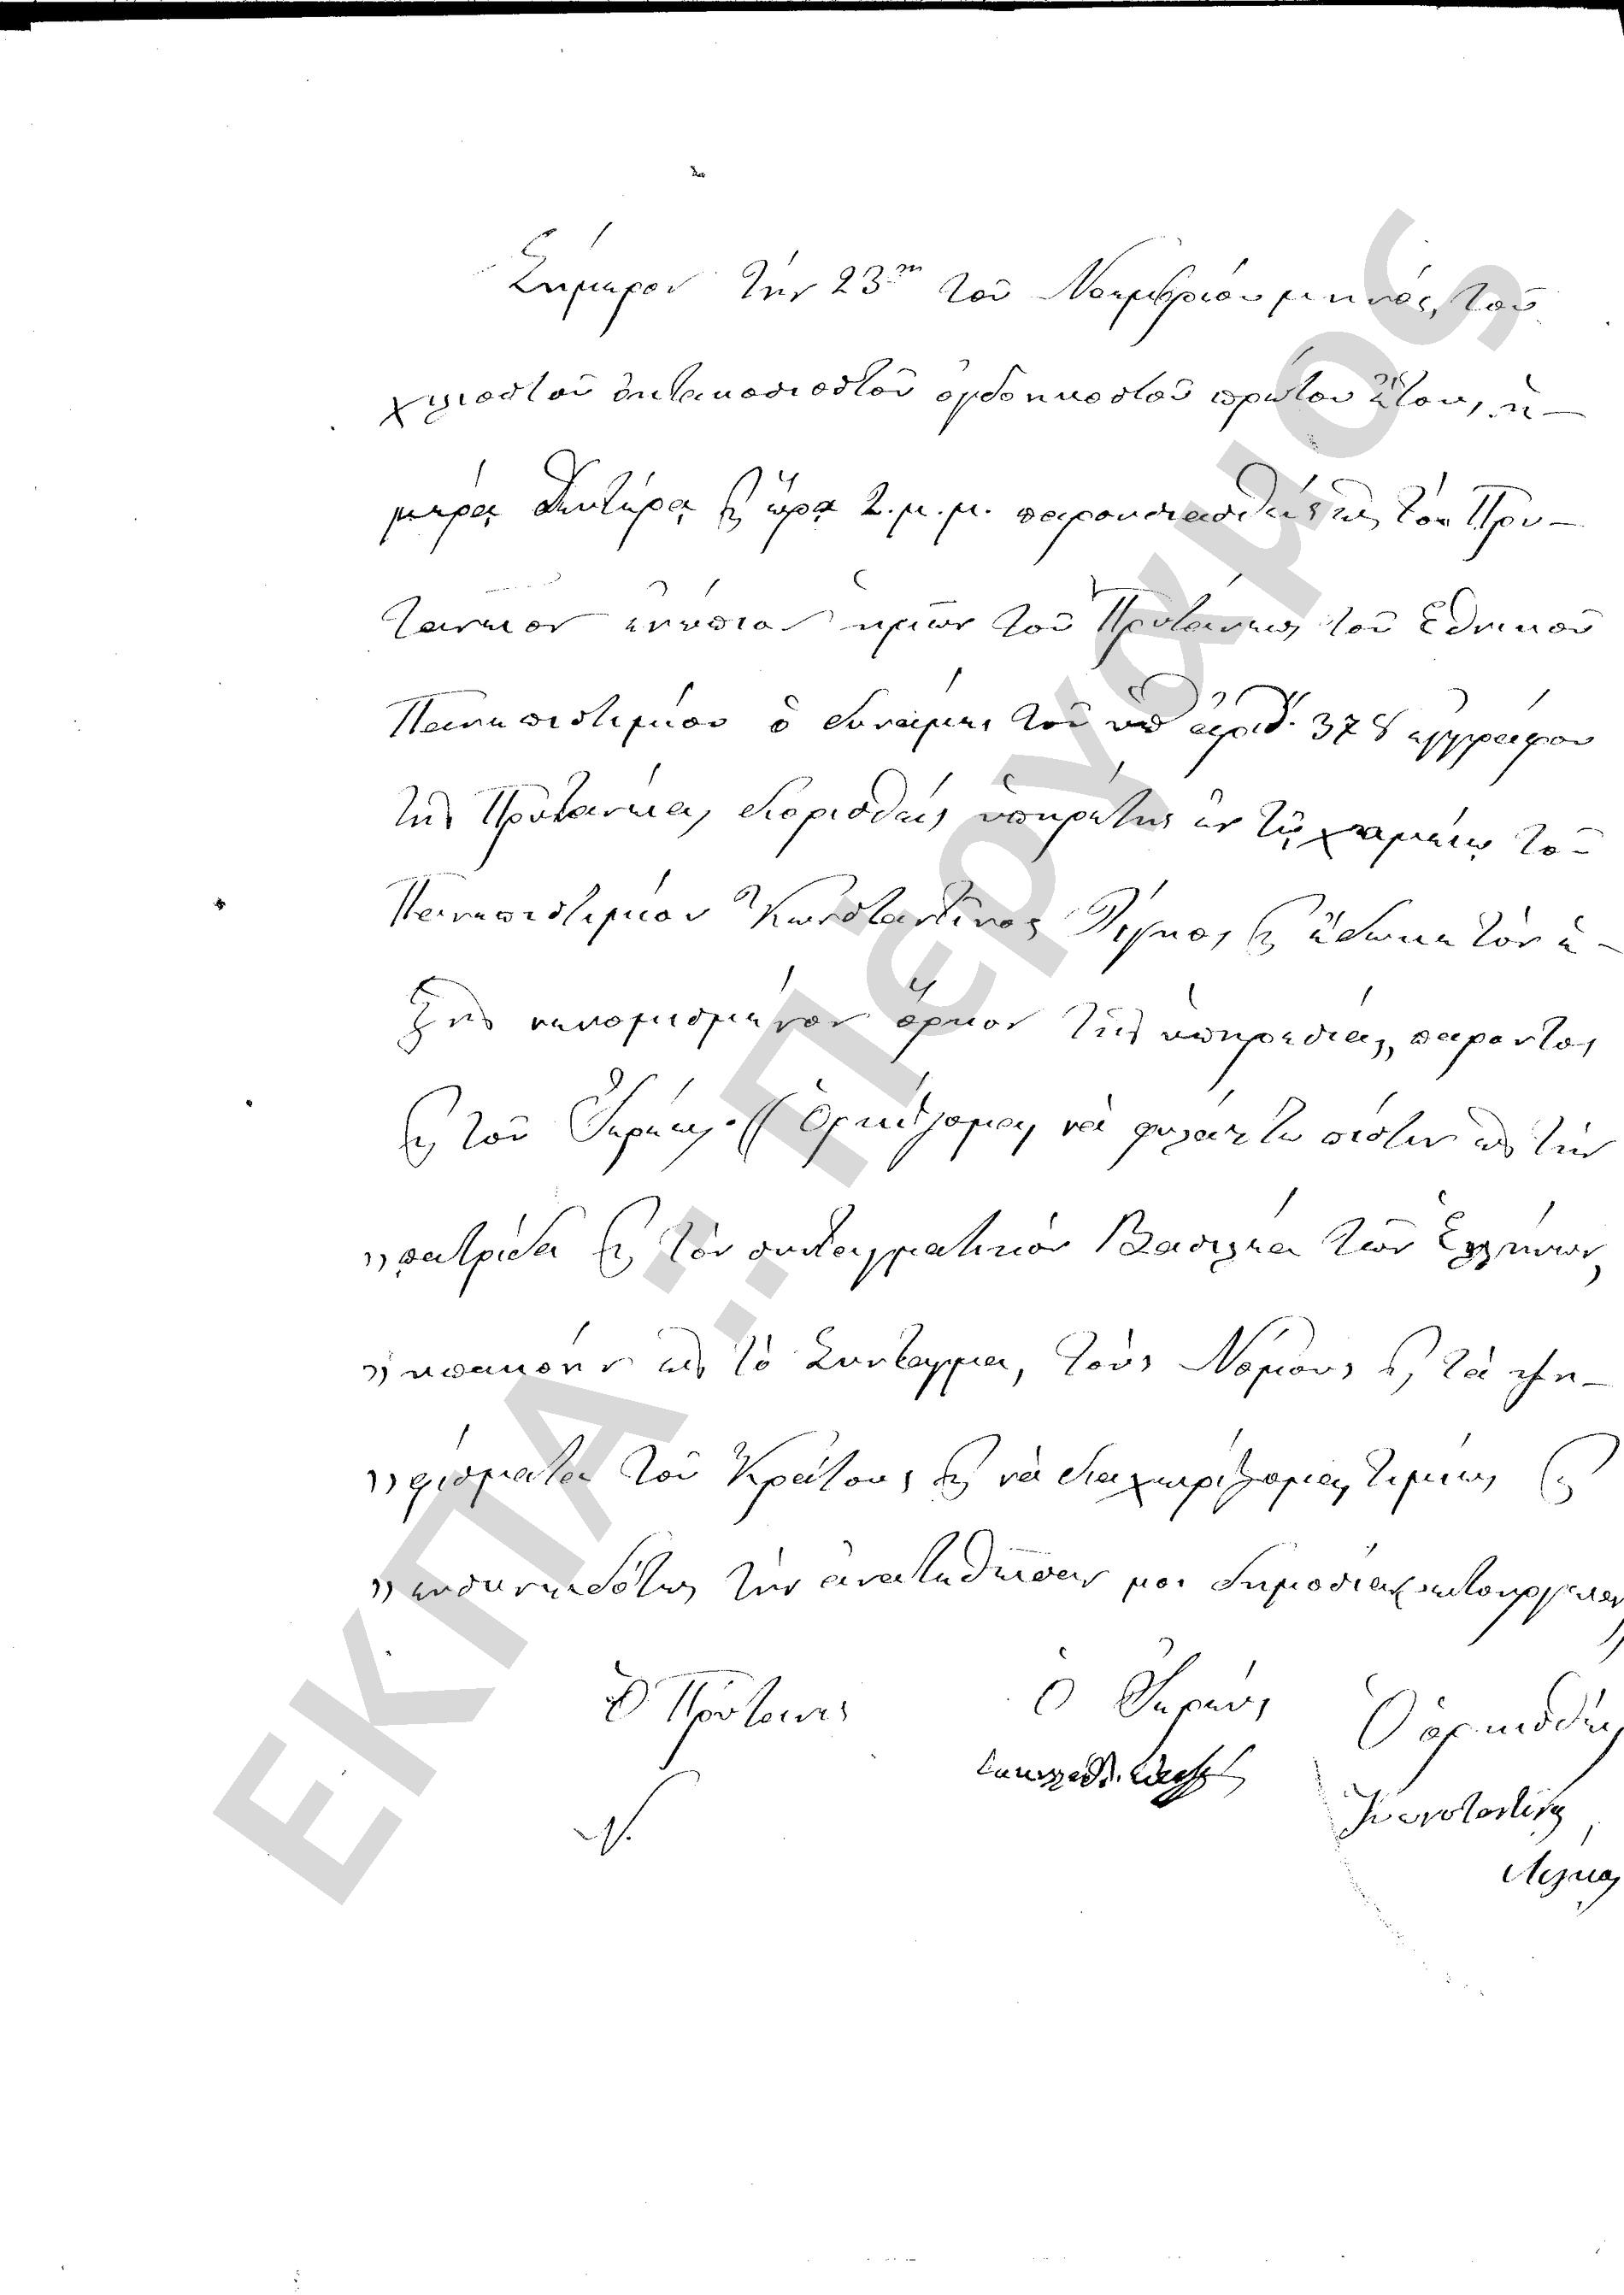 Σήμερον τὴν 23ην τοῦ Νοεμβρίου μηνός, τοῦ
χιλιοστοῦ ὀκτακοσιοστοῦ ὀγδοηκοστοῦ πρώτου ἔτους, ἡ-
μέρᾳ Δευτέρᾳ καὶ ὥρᾳ 2. μ. μ. παρουσιασθεὶς εἰς τὸ Πρυ-
τανεῖον ἐνώπιον ἡμῶν τοῦ Πρυτάνεως τοῦ Ἐθνικοῦ
Πανεπιστημίου ὁ δυνάμει τοῦ ὑπ' ἀριθ. 378 ἐγγράφου
τῆς Πρυτανείας διορισθεὶς ὑπηρέτης ἐν τῷ χημείῳ τοῦ
Πανεπιστημίου Κωνσταντῖνος καὶ ἔδωκε τὸν ἑ-
ξῆς νενομισμένον ὅρκον τῆς ὑπηρεσίας, παρόντος
καὶ τοῦ Ἱερέως. « Ὁρκίζομαι νὰ φυλάττω πίστιν εἰς τὴν
» πατρίδα καὶ τὸν συνταγματικὸν Βασιλέα τῶν Ἑλλήνων,
» ὑπακοὴν εἰς τὸ Σύνταγμα, τοὺς Νόμους καὶ τὰ ψη-
» φίσματα τοῦ Κράτους καὶ νὰ διαχειρίζομαι τιμίως καὶ
» εὐσυνειδότως τὴν ἀνατεθεῖσάν μοι δημοσίαν λειτουργίαν
Ὁ Πρύτανις Ὁ Ἱερεὺς Ὁ ὁρκισθεὶς
Κωνσταντῖνος